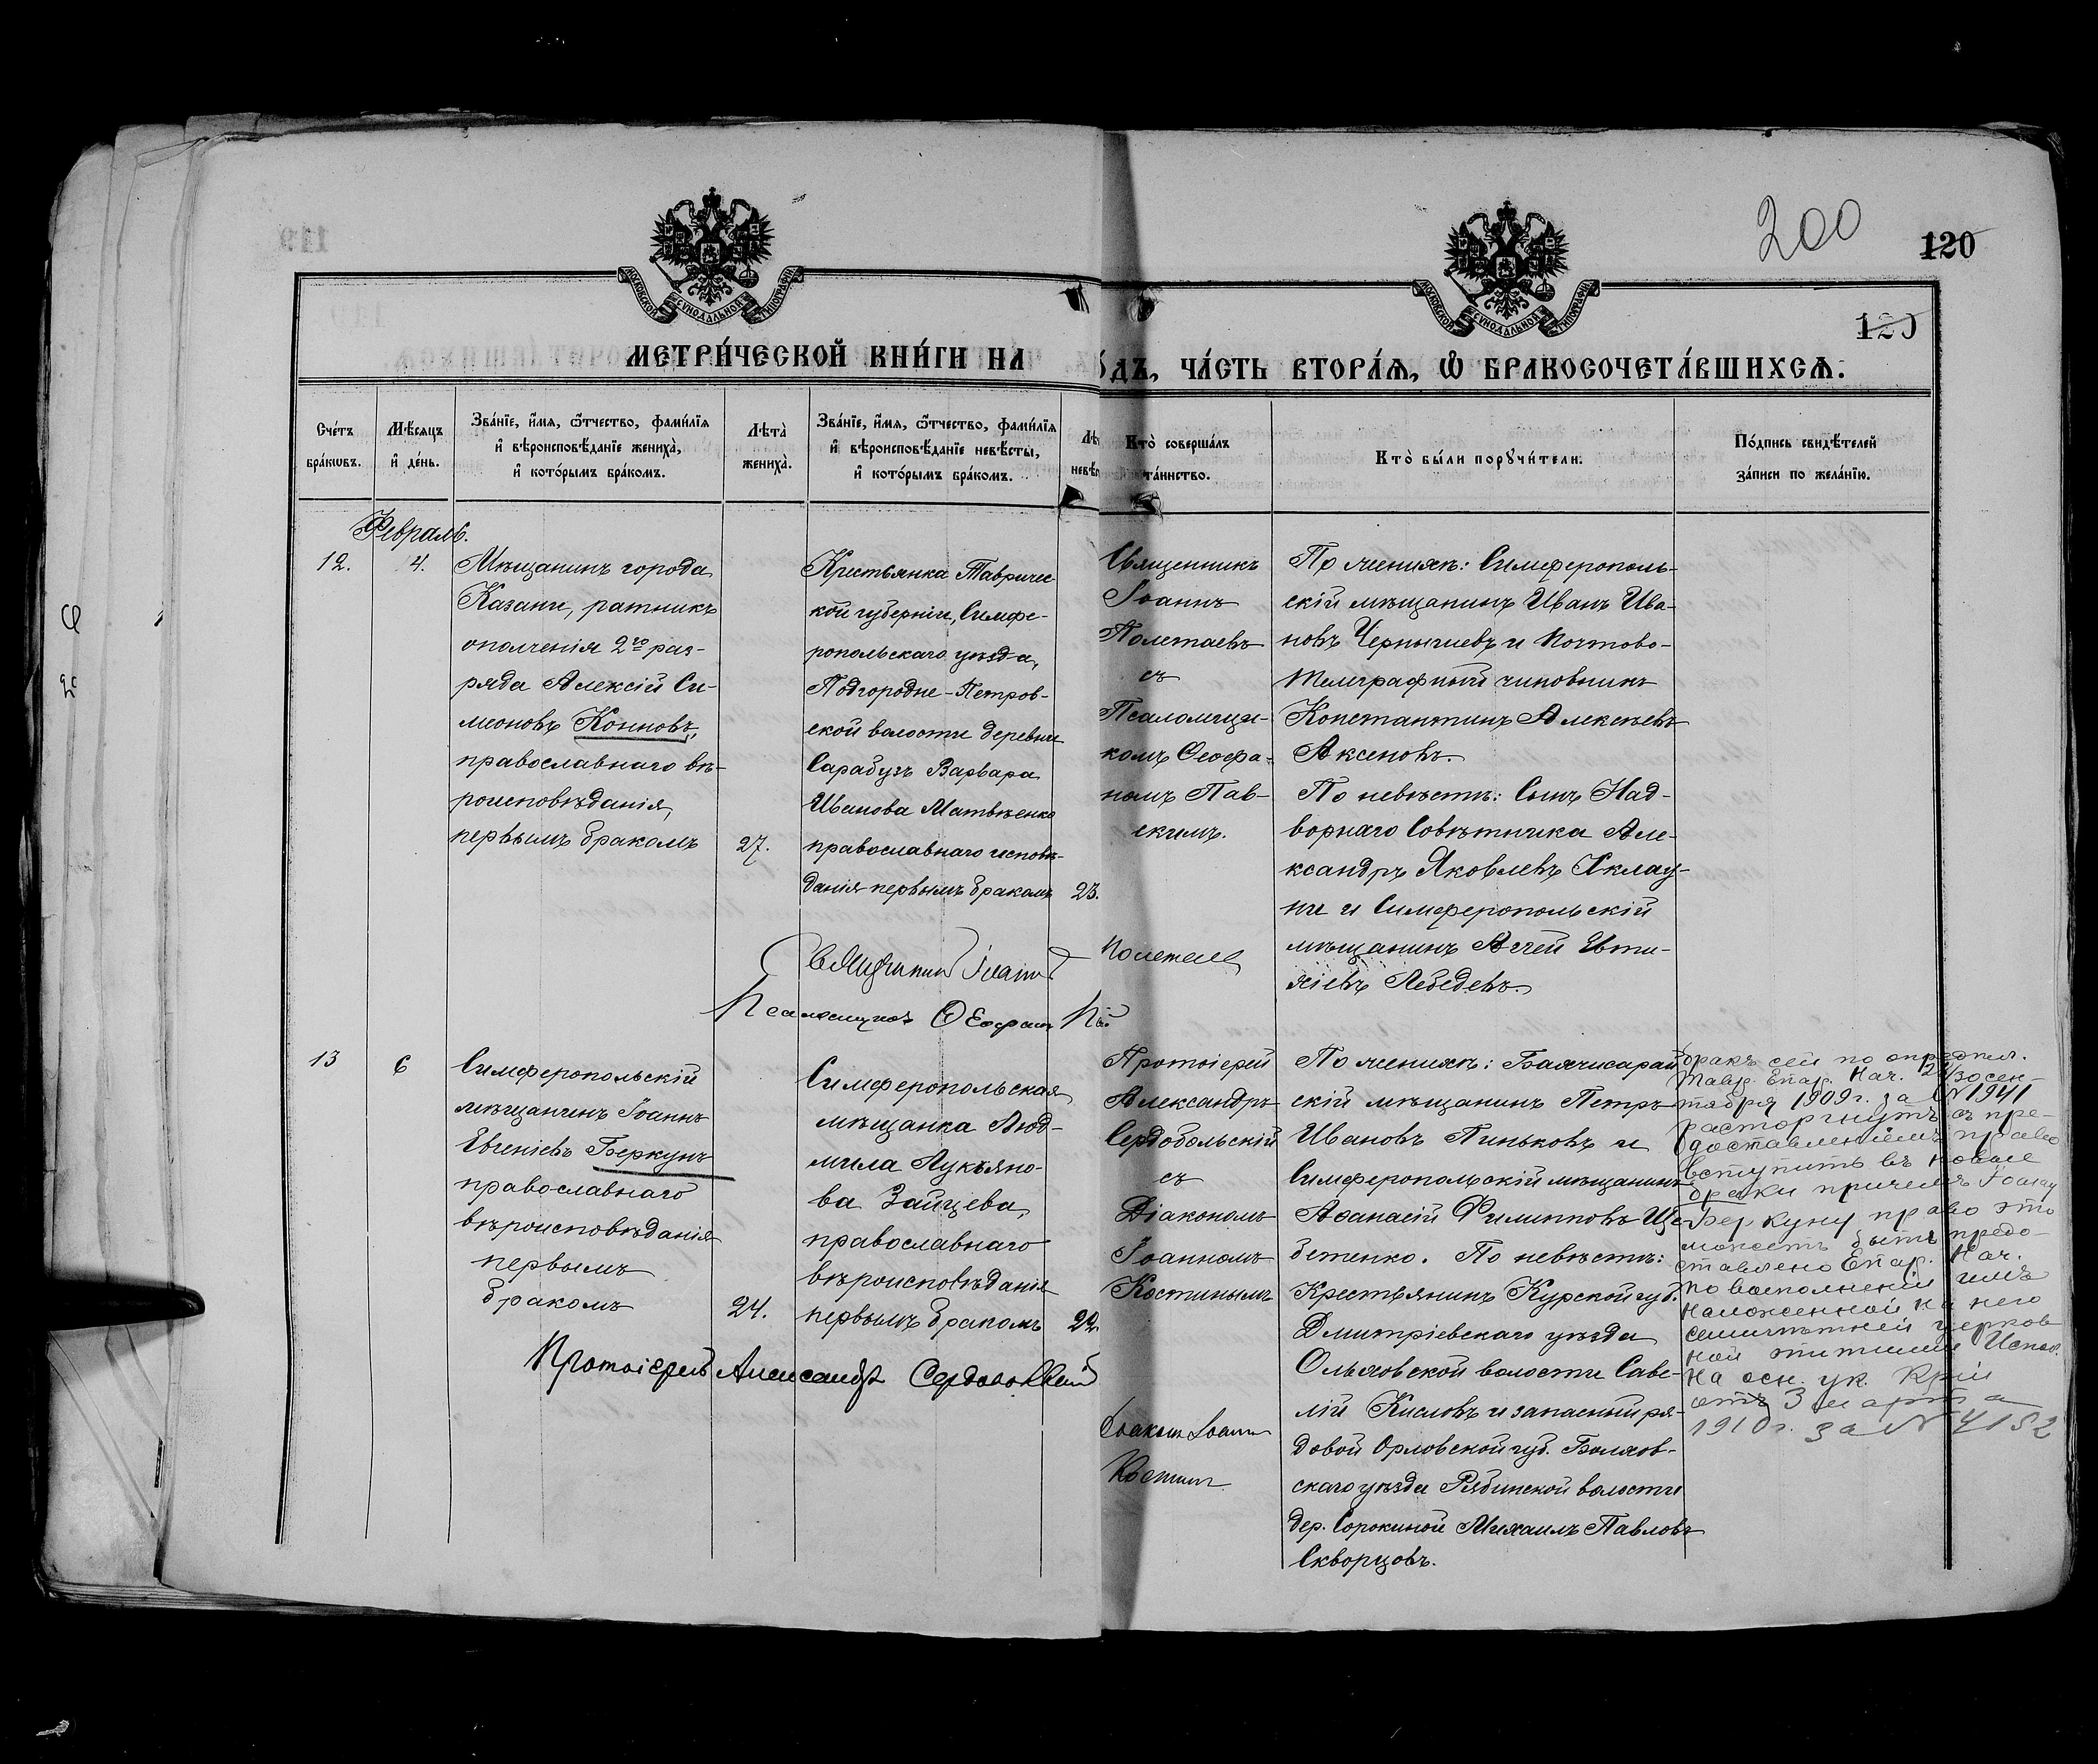 200
120
120
МОСКОВСКОЙ СѴНОДАЛЬНОЙ ТИПОГРАФІИ
МОСКОВСКОЙ СѴНОДАЛЬНОЙ ТИПОГРАФІИ
МЕТРИ́ЧЕСКОЙ КНИ́ГИ НА
ѻ́ДЪ, ЧА́СТЬ ВТОРА́Ѧ, Ѿ БРАКОСОЧЕТА́ВШИХСѦ.
Сче́тъ
бра́ковъ.
Мѣ́сяцъ
и де́нь.
Зва́ніе, и́мя, ѻ́тчество, фами́лія
и вѣроисповѣ́даніе жениха̀,
и кото́рымъ бра́комъ.
Лѣта̀
жениха̀.
Зва́ніе, и́мя, ѻ́тчество, фами́лія
и вѣроисповѣ́даніе невѣ́сты,
и кото́рымъ бра́комъ.
Лѣ
невѣ́с
Кто̀ соверша́лъ
та́инство.
Кто̀ бы́ли порꙋчи́тели.
По́дпись свидѣ́телей
за́писи по жела́нію.
Февраль.
12.
4.
Мѣщанинъ города
Казани, ратникъ
ополченія 2го раз-
ряда Алексій Си-
меоновъ Конновъ,
православнаго вѣ-
роисповѣданія,
первымъ бракомъ
27.
Крестьянка Тавричес-
кой губерніи, Симфе-
ропольскаго уѣзда,
Подгородне-Петров-
ской волости деревни
Сарабузъ Варвара
Иванова Матвѣенко
православнаго исповѣ-
данія первымъ бракомъ
23.
Священникъ
Іоаннъ
Полетаевъ
съ
Псаломщи-
комъ Ѳеофа-
номъ Пав-
скимъ.
По женихѣ: Симферополь-
скій мѣщанинъ Иванъ Ива-
новъ Чернышевъ и Почтово-
Телеграфный чиновникъ
Константинъ Алексѣевъ
Аксеновъ.
По невѣстѣ: Сынъ Над-
ворнаго Совѣтника Але-
ксандръ Яковлевъ
и Симферопольскій
мѣщанинъ Евти-
хіевъ Лебедевъ.
Священникъ Іоаннъ Полетаевъ
Псаломщикъ Ѳеофанъ
13
6
Симферопольскій
мѣщанинъ Іоаннъ
Евгеніевъ Беркунъ
православнаго
вѣроисповѣданія
первымъ
бракомъ
24.
Симферопольская
мѣщанка Люд-
мила Лукьяно-
ва Зайцева,
православнаго
вѣроисповѣданія
первымъ бракомъ
22.
Протоіерей
Александръ
Сердобольскій
съ
Діакономъ
Іоанномъ
Костинымъ
По женихѣ: Бахчисарай-
скій мѣщанинъ Петръ
Ивановъ Пиньковъ и
Симферопольскій мѣщанинъ
Аѳанасій Филипповъ Ще-
бетенко. По невѣстѣ:
Крестьянинъ Курской губ.
Дмитріевскаго уѣзда
Ольховской волости Саве-
лій Кисловъ и запасный ря-
довой Орловской губ. Болхов-
скаго уѣзда Рябинской волости
дер. Сорокиной Михаилъ Павловъ
Скворцовъ.
Бракъ сей по опредѣл.
Тавр. Епар. Нач. 24/30 сен-
тября 1909 г. за № 1941
расторгнутъ съ пре-
доставленіемъ права
вступить въ новые
браки причемъ Іоанну
Беркуну право это
можетъ быть предо-
ставлено Епар. Нач.
по выполненіи имъ
наложенной на него
семилѣтней церков-
ной эпитиміи
На осн. ук.
отъ 3 марта
1910 г. за № 4152
Протоіерей Александръ Сердобольскій
Діаконъ Іоаннъ
Костинъ